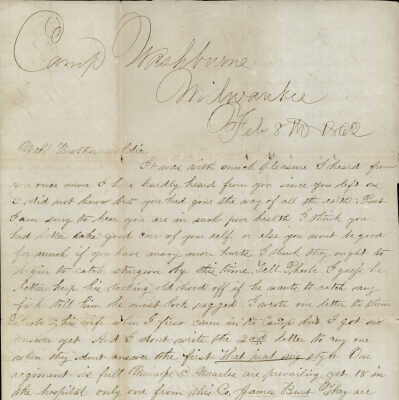 Camp Washburne
Milwaukie
Feb 8th 1862
Well Brother
It was with much pleasure I heard from
you once more I have hardly heard from you since you left one
I did not know but you had gone the way of all the earth. But
I am sorry to hear you are in such poor health I think you
had better take good care of your self or else you wont be good
for much if you have many more hurts I think they ought to
begin to catch sturgeon by this time. Tell I guess he
better keep his old off if he wants to catch any
fish tell him he must look I wrote one letter to
& his wife when I first came in the Camp but I got no
answer yet. And I dont write the 2nd letter to any one
when they dont answer the first that not my style Our
regiment is full & Measles are prevailing yet 18 in
the hospital only one from this Co. James They are